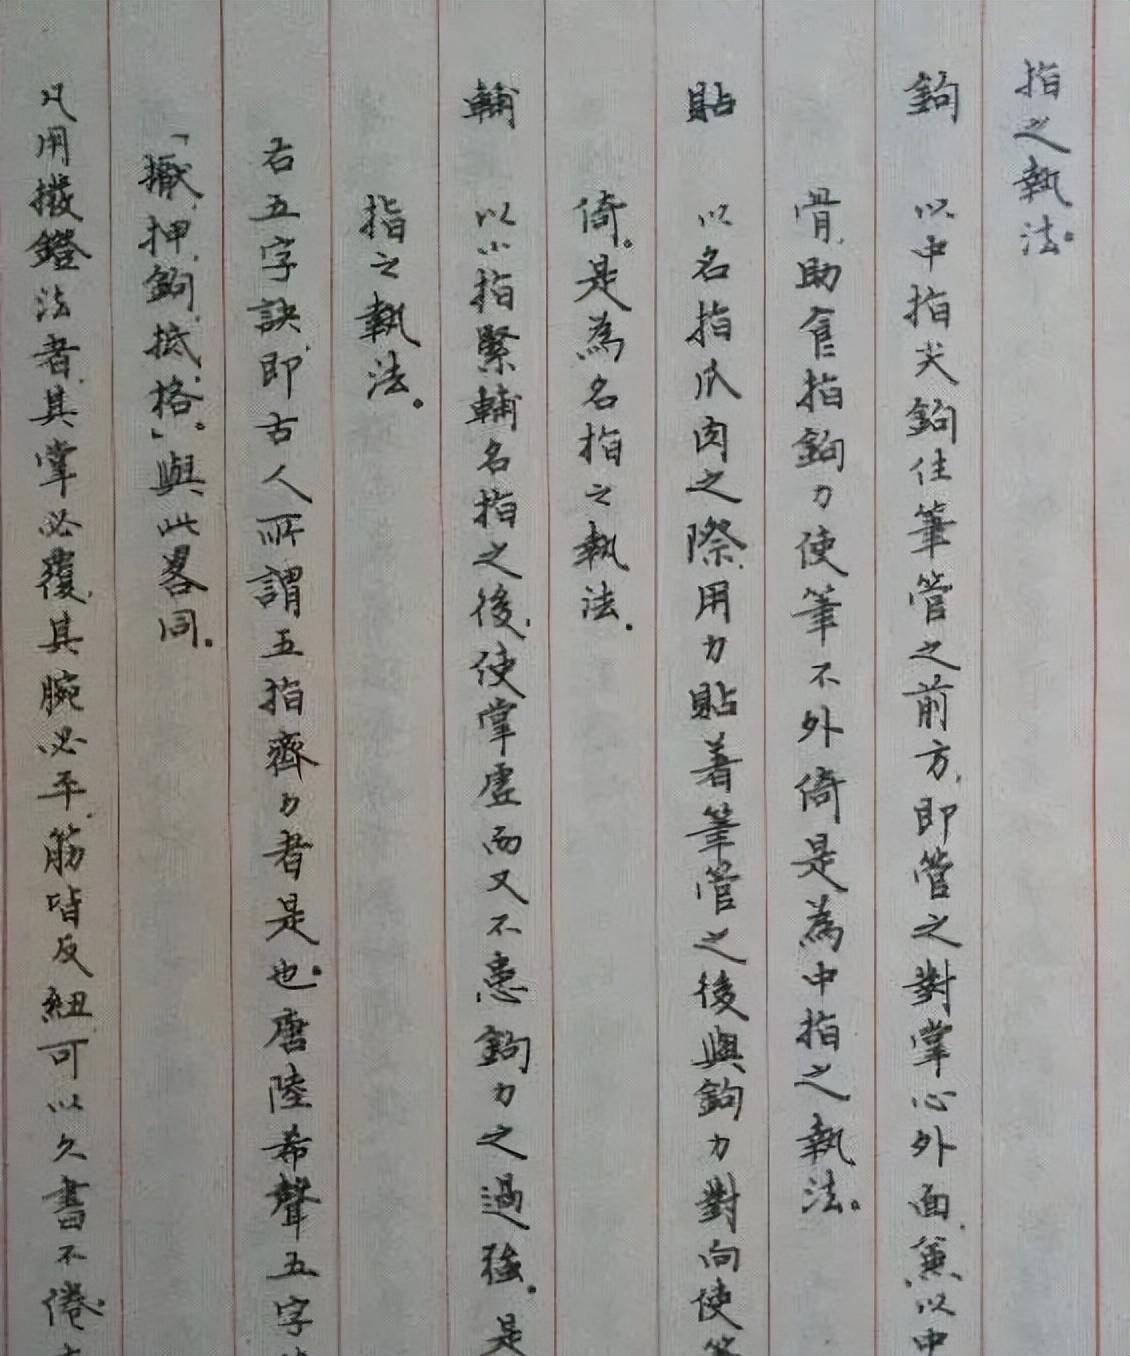 指之執法。
鉤　以中指尖鉤住筆管之前方，即管之對掌心外面，兼以中
骨，助食指鉤力使筆不外倚是為中指之執法。
貼　以名指爪肉之際，用力貼着筆管之後與鉤力對向使
倚。是為名指之執法．
輔　以小指緊輔名指之後，使掌虛而又不患鉤力之過強。是
指之執法。
右五字訣，即古人所謂五指齊力者是也。唐陸希聲五字
「擫，押，鉤，抵，格。」與此畧同．
凡用撥鐙法者，其掌必覆，其腕必平，筋皆反紐，可以久書不倦。